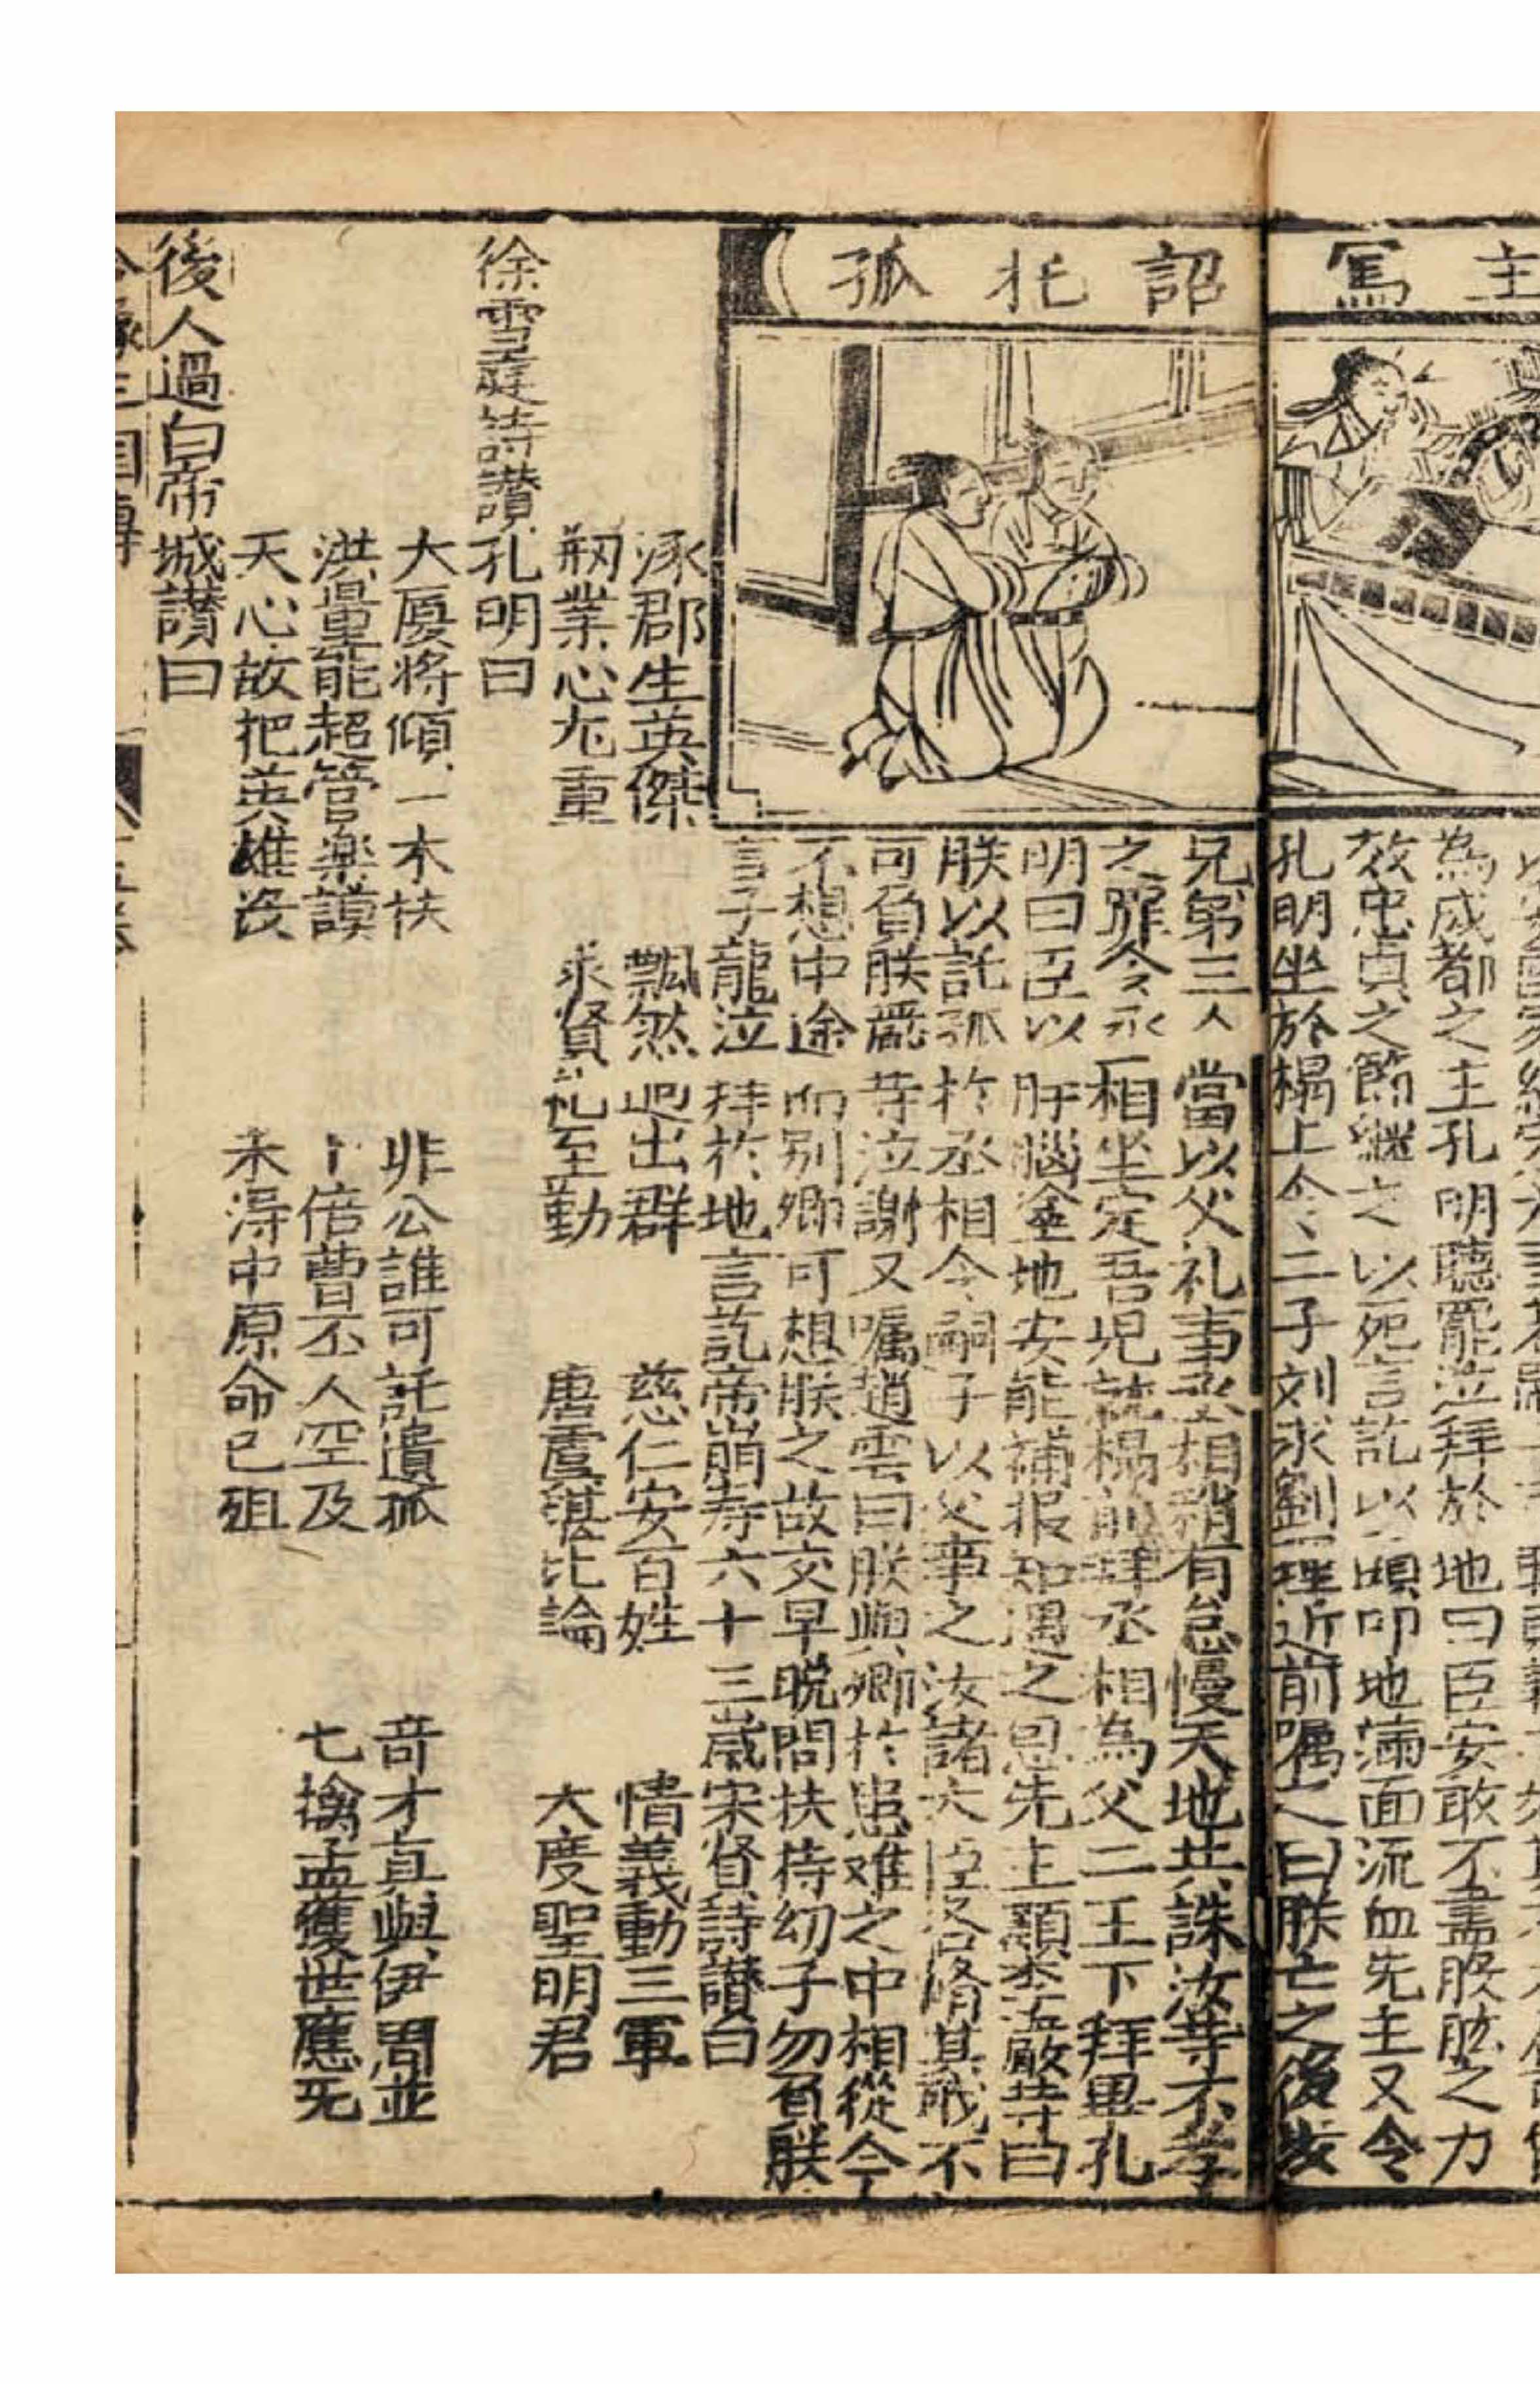 主寫
為成都之主孔明聽罷泣拜於地曰臣安敢不盡股肱之力
效忠貞之節継之以死言訖以頭叩地滿面流血先主又令
孔明坐於榻上令二子刘永劉理近前嘱之曰朕亡之後汝
詔托孤
兄弟三人當以父礼事丞相稍有怠慢天地共誅汝等不孝
之罪令永相坐定吾児就榻前拜丞相為父二王下拜畢孔
明曰臣以肝腦塗地安能補报知遇之恩先主顧李嚴等曰
朕以託孤於丞相令嗣子以父事之汝諸大臣各脩其職不
可負朕嚴等泣謝又嘱趙雲曰朕與卿於患难之中相從今
不想中途而别卿可想朕之故交早晚問扶持幼子勿負朕
言子龍泣拝於地言訖帝崩寿六十三歲宋賢詩讃曰
涿郡生英傑　飄然迥出群　慈仁安百姓　情義動三軍
剏業心尤重　求賢礼至勤　唐虞堪比論　大度聖明君
徐雪庭詩讃孔明曰
大厦将傾一木扶　非公誰可託遺孤　竒才真與伊周並
洪量能超管楽謨　十倍曹丕人罕及　七擒孟獲世應无
天心故把英雄没　未得中原命已殂
後人過白帝城讃曰